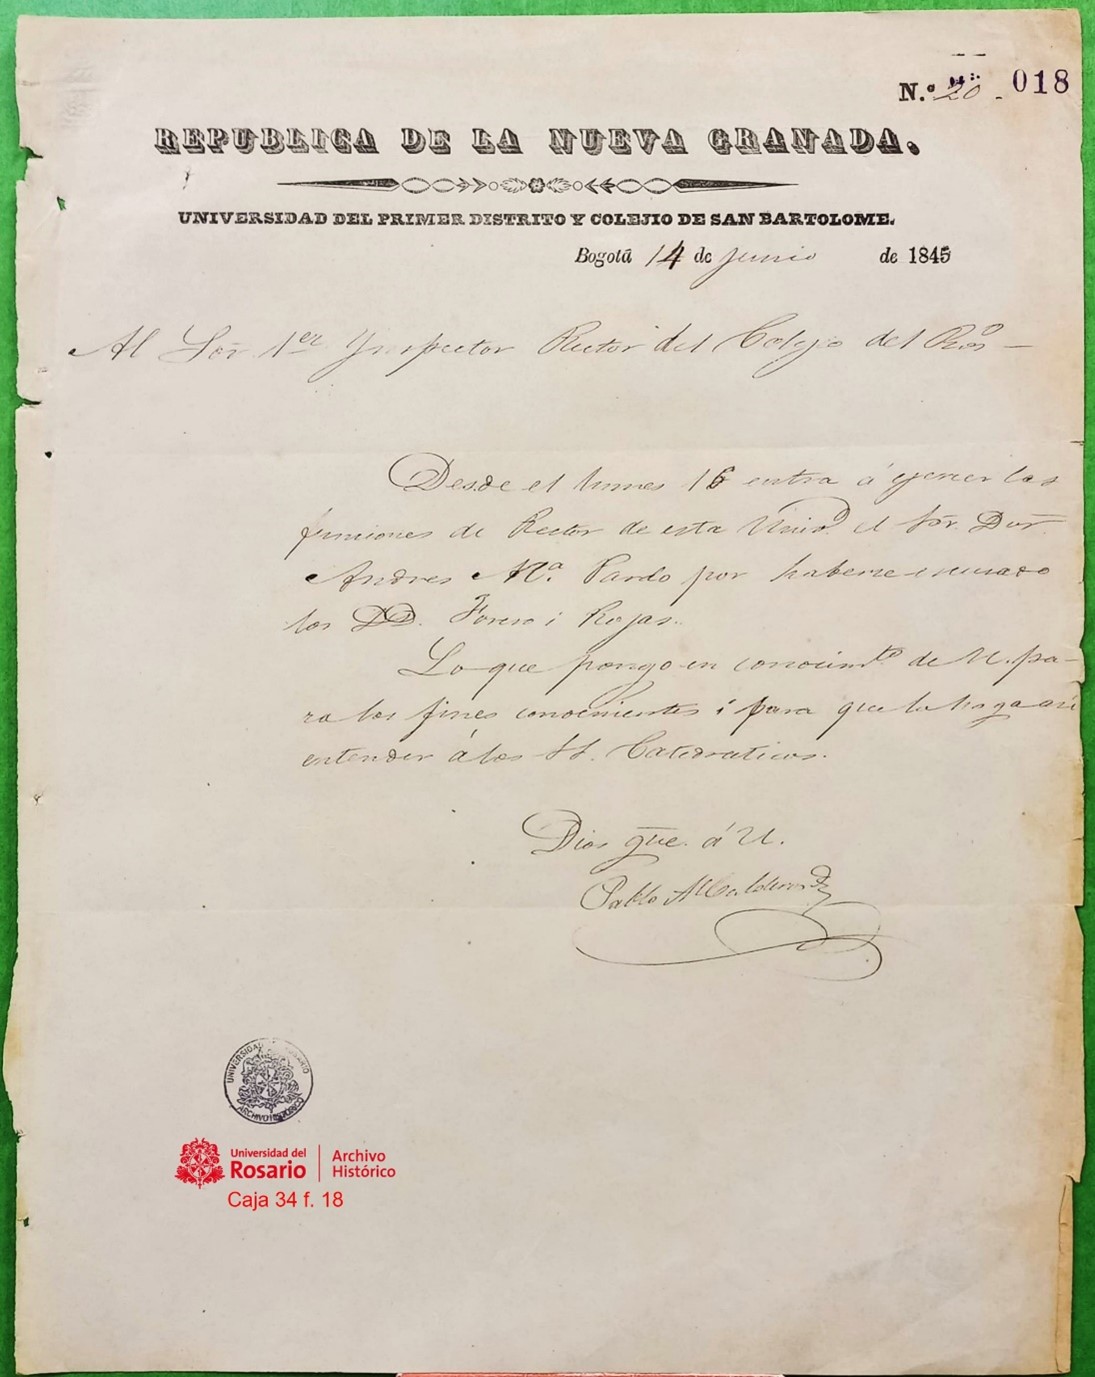 N.º 20. 018
REPUBLICA DE LA NUEVA GRANADA.
UNIVERSIDAD DEL PRIMER DISTRITO Y COLEJIO DE SAN BARTOLOME.
Bogotá 14 de junio de 1845
Al Sor. 1er Ynspector Rector del Colejio del Ros
Desde el lunes 16 entra á ejercer las
funciones de Rector de esta Univd. el Sor. Dor.
Andres Ma. Pardo por haberse escusado
los DD. Forero i Rojas.
Lo que pongo en conocimto de U. pa-
ra los fines convenientes i para que lo haga asi
entender á los SS. Catedraticos.
Dios gue. á U.
Pablo A Calderon
UNIVERSIDAD ROSARIO
ARCHIVO HISTORICO
Universidad del
Rosario
Archivo
Histórico
Caja 34 f. 18